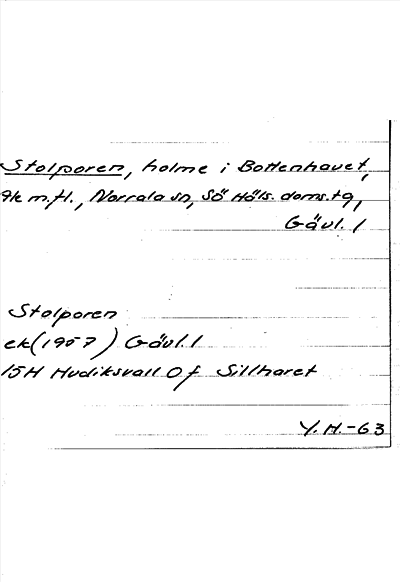 Stolporen, holme i Bottenhavet,
9k m.fl., Norrala sn, Sö Häls. doms.tg,
Gävl. l
Stolporen
ek (1957) Gävl. l
15H Hudiksvall 0 f Sillharet
Y. H. -63